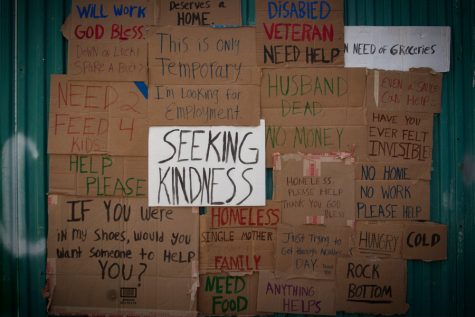 Will Work
GOD BLESS
Deserves a
HOME.
DISABLED
VETERAN
NEED HELP
IN NEED OF GROCERIES
Down on Luck!
SPARE A BUCK?
This is only
Temporary.
I'm Looking for
Employment.
EVEN a SMILE
Can HELP
NEED 2
FEED 4
KIDS
HELP
PLEASE
HUSBAND
DEAD.
NO MONEY
HAVE YOU
EVER FELT
INVISIBLE
SEEKING
KINDNESS
HOMELESS.
PLEASE HELP
THANK YOU GOD
BLESS
NO HOME
NO WORK
PLEASE HELP
IF YOU WERE
IN MY SHOES, WOULD YOU
WANT SOMEONE TO HELP
YOU?
HOMELESS
SINGLE MOTHER
FAMILY
Just Trying to
Get through Another
DAY
HUNGRY
COLD
ROCK
BOTTOM
NEED
FOOD
ANYTHING
HELPS